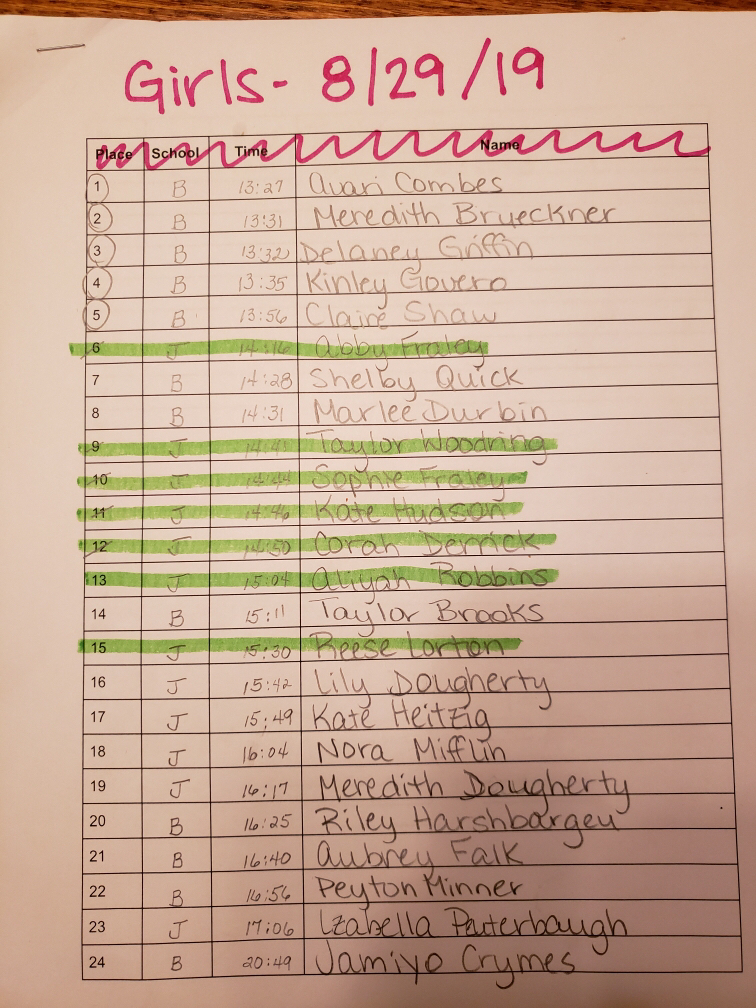 Girls- 8/29/19
Place School Time Name
1 B 13:27 Avari Combes
2 B 13:31 Meredith Brueckner
3 B 13:32 Delaney Griffin
4 B 13:35 Kinley Govero
5 B 13:56 Claire Shaw
6 J 14:16 Abby Fraley
7 B 14:28 Shelby Quick
8 B 14:31 Marlee Durbin
9 J 14:41 Taylor Woodring
10 J 14:44 Sophie Fraley
11 J 14:46 Kate Hudson
12 J 14:50 Corah Derrick
13 J 15:04 Aliyah Robbins
14 B 15:11 Taylor Brooks
15 J 15:30 Reese Lorton
16 J 15:42 Lily Dougherty
17 J 15:49 Kate Heitzig
18 J 16:04 Nora Mifflin
19 J 16:17 Meredith Dougherty
20 B 16:25 Riley Harshbargeu
21 B 16:40 Aubrey Falk
22 B 16:56 Peyton Minner
23 J 17:06 Izabella Puterbaugh
24 B 20:49 Jamiyo Crymes